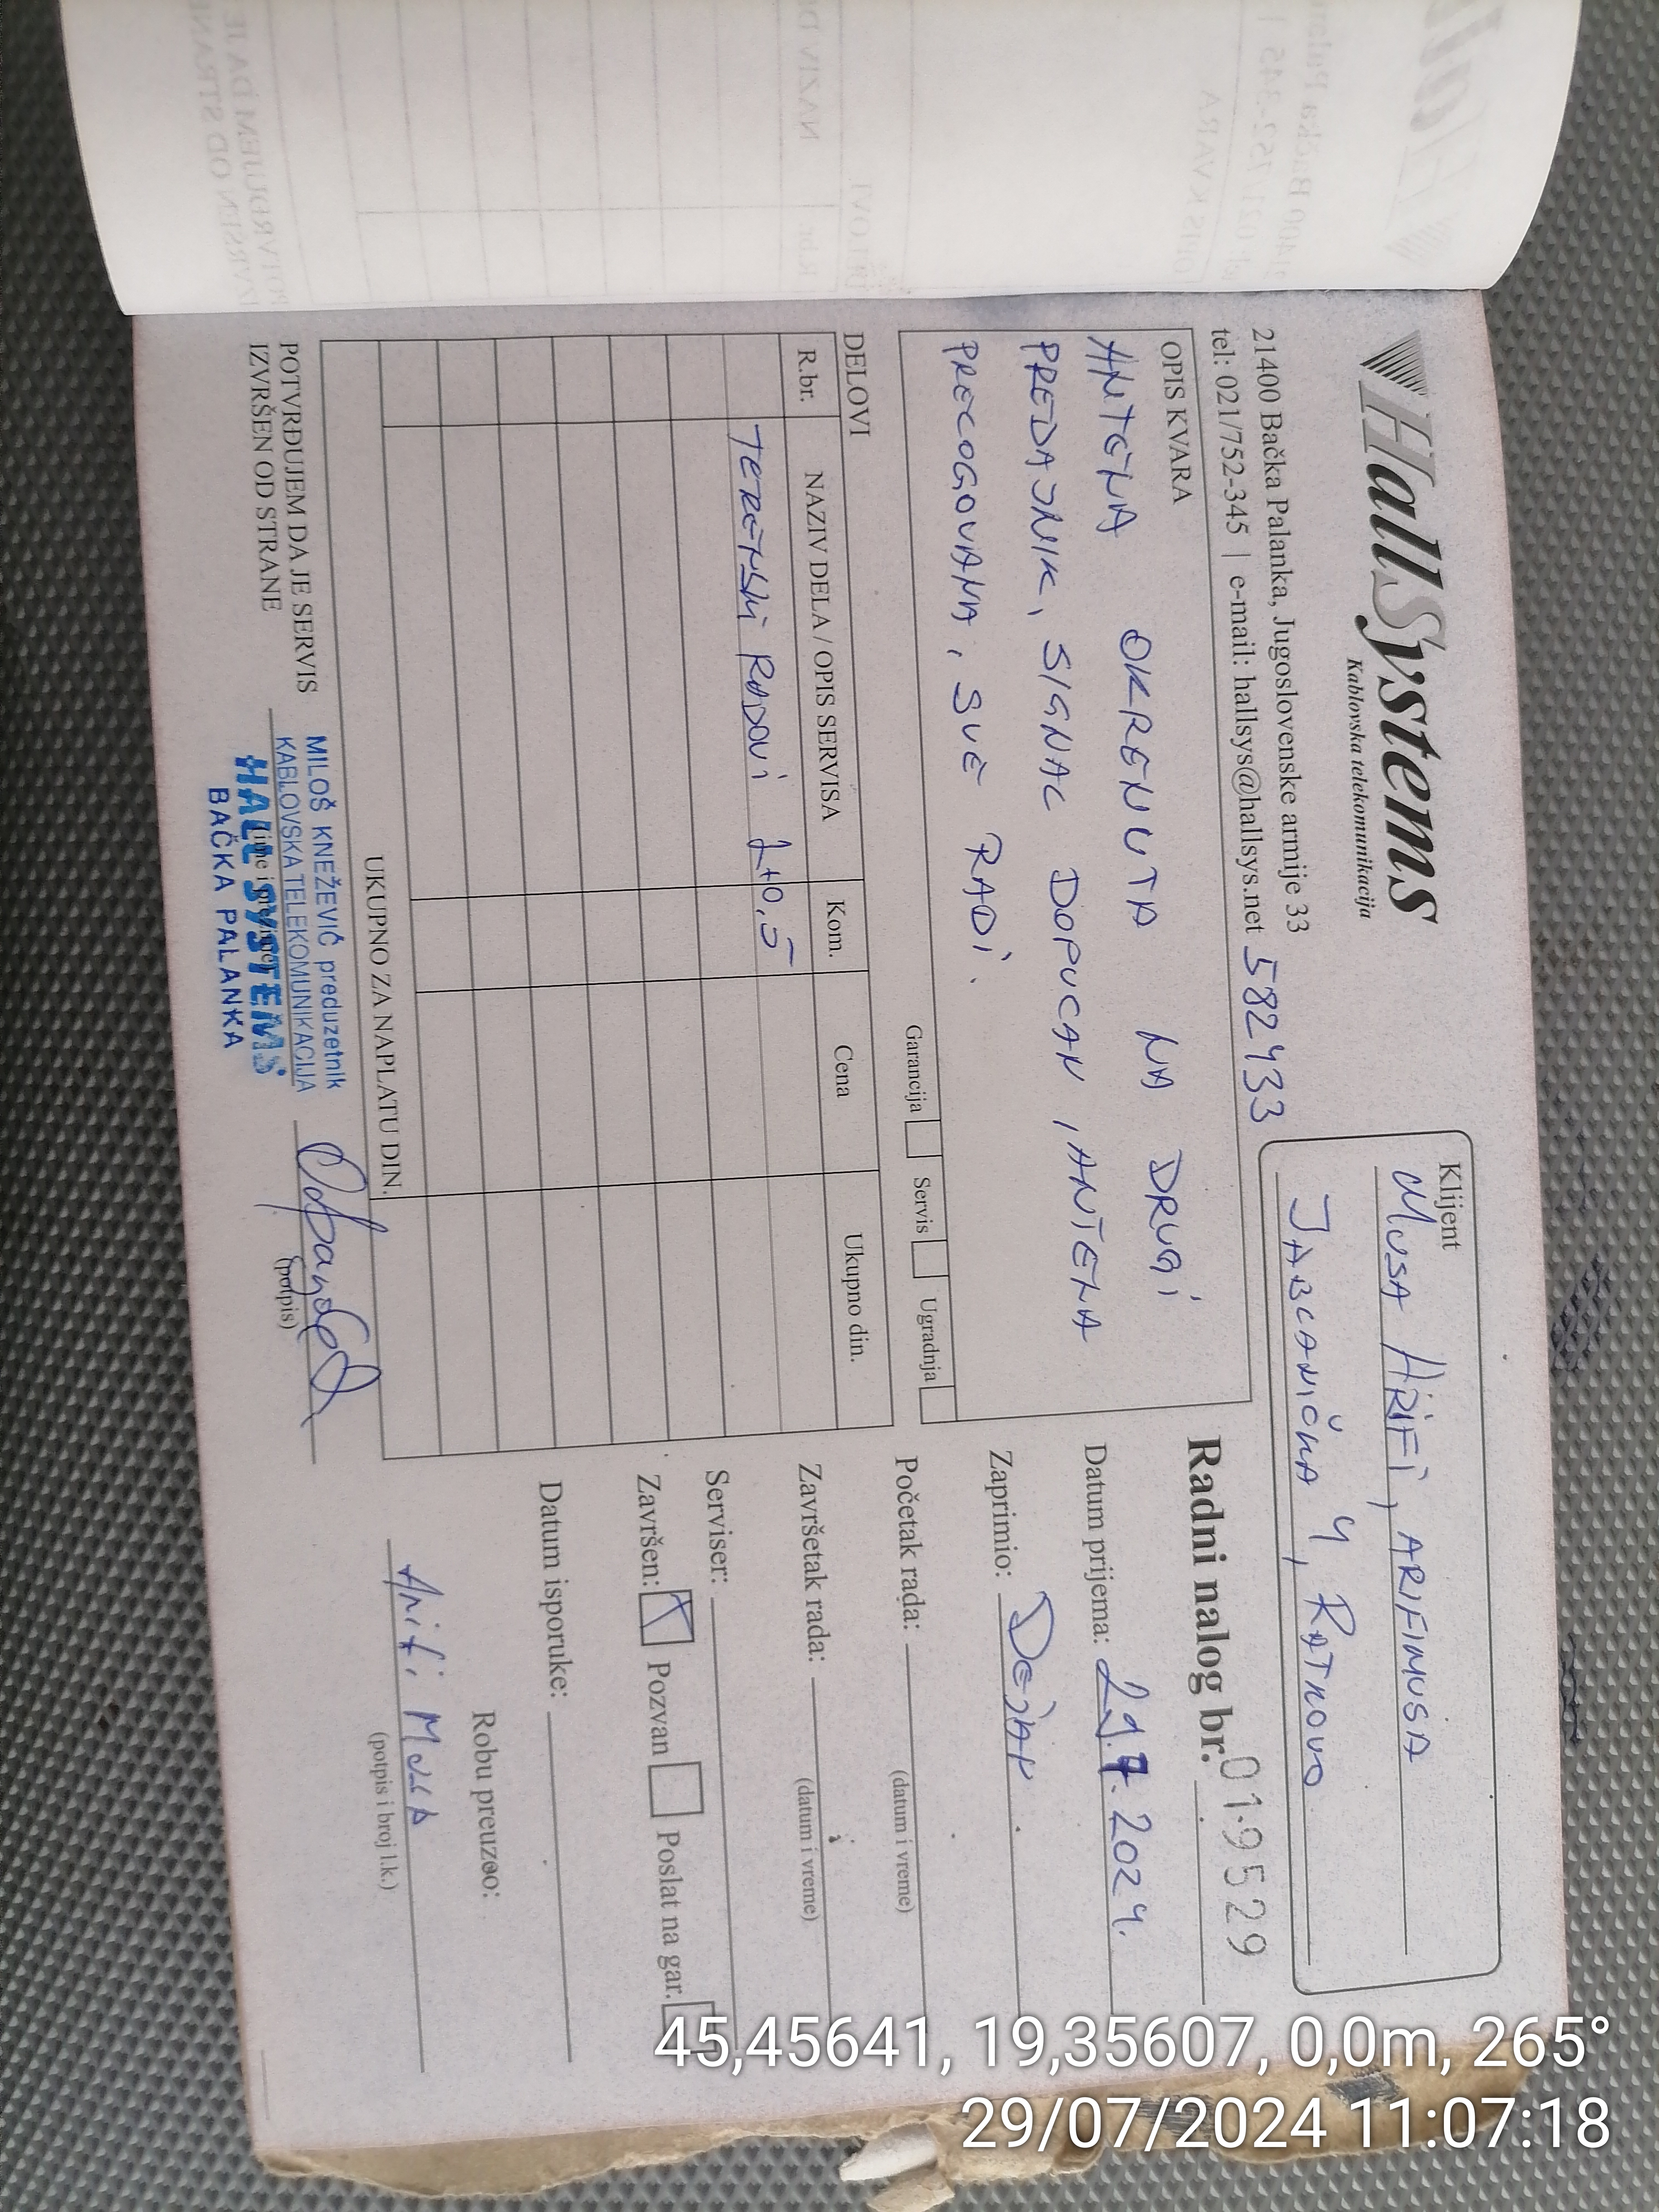 HallSystems
Kablovska telekomunikacija
21400 Bačka Palanka, Jugoslovenske armije 33
tel: 021/752-345 | e-mail: hallsys@hallsys.net 582433
Klijent
MUSA ARIFI, ARIFIMUSA
JABLANIČKA 4, RATKOVO
OPIS KVARA
ANTENA OKRENUTA NA DRUGI
PREDAJNIK, SIGNAL DOPUCAN, ANTENA
PRELOGOVANA, SVE RADI.
Garancija Servis Ugradnja
DELOVI
R.br. NAZIV DELA / OPIS SERVISA Kom. Cena Ukupno din.
TERENSKI RADOVI 1+0,5
UKUPNO ZA NAPLATU DIN.
POTVRĐUJEM DA JE SERVIS
IZVRŠEN OD STRANE
MILOŠ KNEŽEVIĆ preduzetnik
KABLOVSKA TELEKOMUNIKACIJA
HALL SYSTEMS
BAČKA PALANKA
(potpis)
Radni nalog br. 019529
Datum prijema: 29.7.2024.
Zaprimio: DEJAN
Početak rada:
(datum i vreme)
Završetak rada:
(datum i vreme)
Serviser:
Završen: Pozvan Poslat na gar.
Datum isporuke:
Robu preuzeo:
Arifi Musa
(potpis i broj l.k.)
45,45641, 19,35607, 0,0m, 265°
29/07/2024 11:07:18